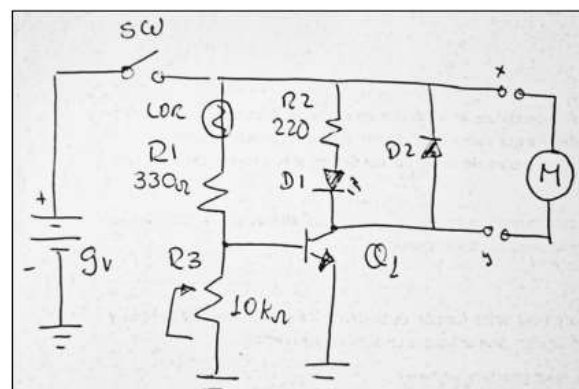 SW
x
LDR
R2
220
D2
R1
330Ω
D1
M
+
-
9v
R3
10kΩ
Q1
y